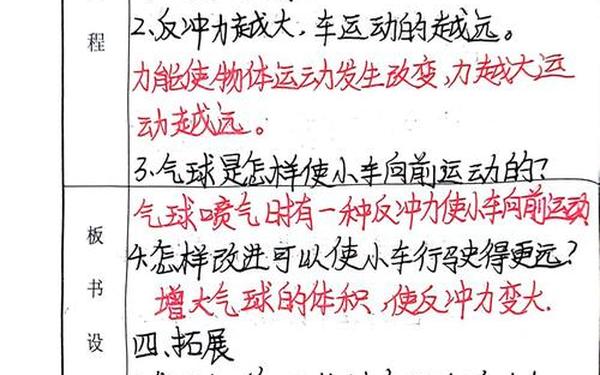 程
2.反冲力越大,车运动的越远。
力能使物体运动发生改变,力越大运
动越远。
3.气球是怎样使小车向前运动的?
气球喷气时有一种反冲力使小车向前运动
板
4.怎样改进可以使小车行驶得更远?
书
增大气球的体积,使反冲力变大.
设
四、拓展